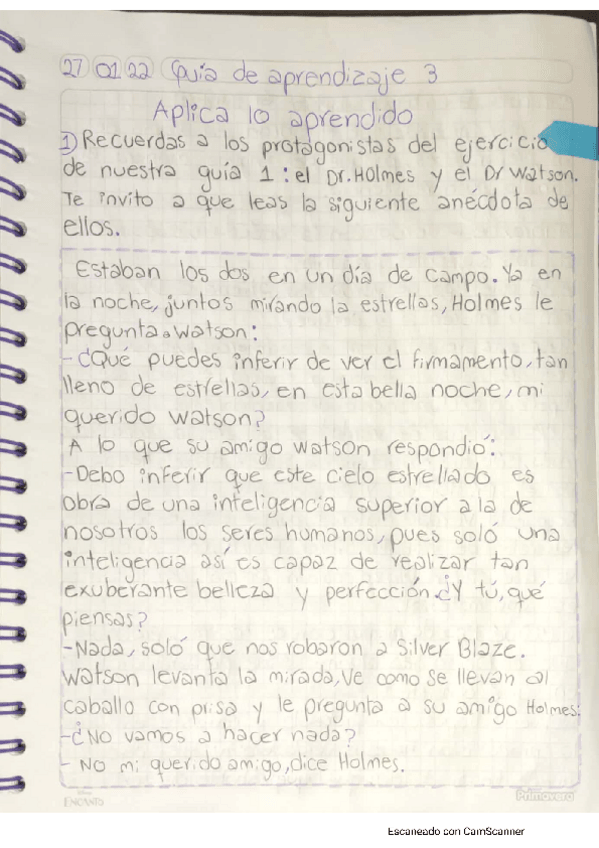 27 01 22 Guía de aprendizaje 3
Aplica lo aprendido
1) Recuerdas a los protagonistas del ejercicio
de nuestra guía 1: el Dr. Holmes y el Dr Watson.
Te invito a que leas la siguiente anécdota de
ellos.
Estaban los dos en un día de campo. Ya en
la noche, juntos mirando la estrellas, Holmes le
pregunta a Watson:
-¿Qué puedes inferir de ver el firmamento, tan
lleno de estrellas, en esta bella noche, mi
querido Watson?
A lo que su amigo Watson respondió:
-Debo inferir que este cielo estrellado es
obra de una inteligencia superior a la de
nosotros los seres humanos, pues soló una
inteligencia así es capaz de realizar tan
exuberante belleza y perfección. ¿Y tú, qué
piensas?
-Nada, soló que nos robaron a Silver Blaze.
Watson levanta la mirada, ve como se llevan al
caballo con prisa y le pregunta a su amigo Holmes:
-¿No vamos a hacer nada?
- No mi querido amigo, dice Holmes.
ENCANTO
Primavera
Escaneado con CamScanner